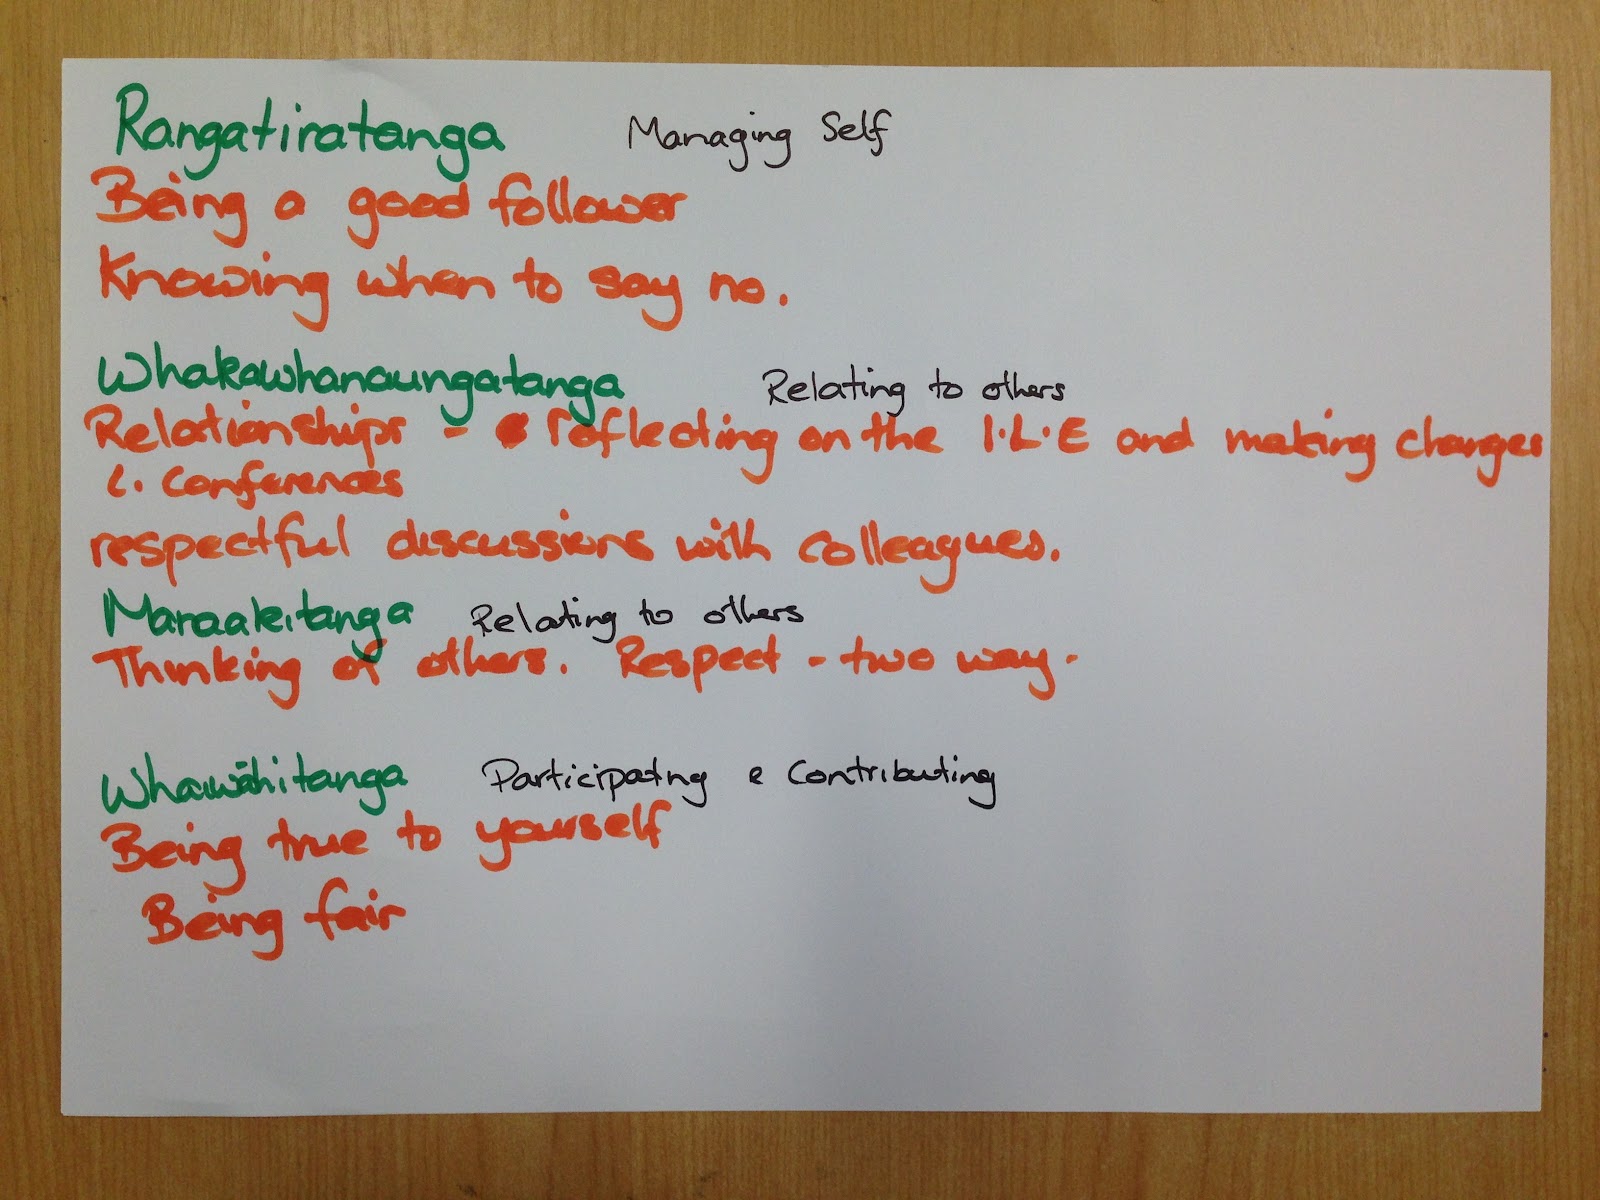 Rangatiratanga Managing Self
Being a good follower
Knowing when to say no.
Whakawhanaungatanga Relating to others
Relationships - reflecting on the I.L.E and making changes
L. Conferences
respectful discussions with colleagues.
Manaakitanga Relating to others
Thinking of others. Respect - two way.
Whaiwāhitanga Participatng & Contributing
Being true to yourself
Being fair